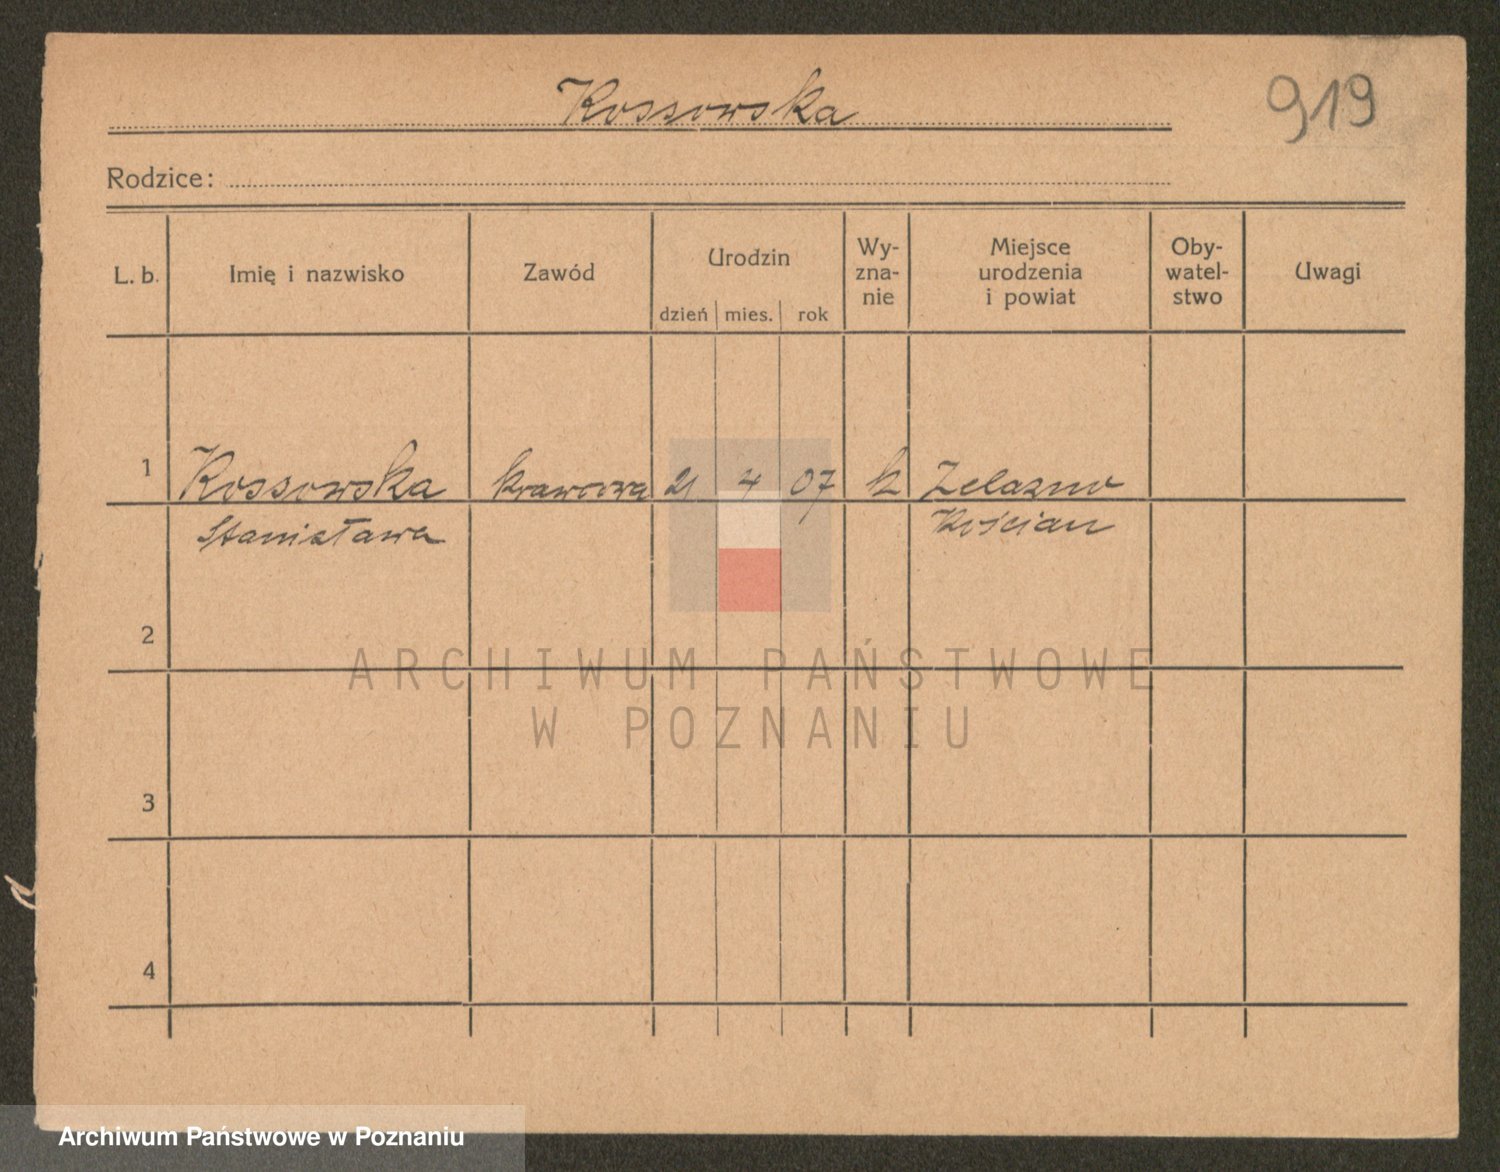 Kossowska
919
Rodzice:
L. b.
Imię i nazwisko
Zawód
Urodzin
dzień mies. rok
Wy-
zna-
nie
Miejsce
urodzenia
i powiat
Oby-
watel-
stwo
Uwagi
1 Kossowska krawcowa 21 4 07 k Zelazno
Stanisława Kościan
2
3
4
ARCHIWUM PAŃSTWOWE
W POZNANIU
Archiwum Państwowe w Poznaniu